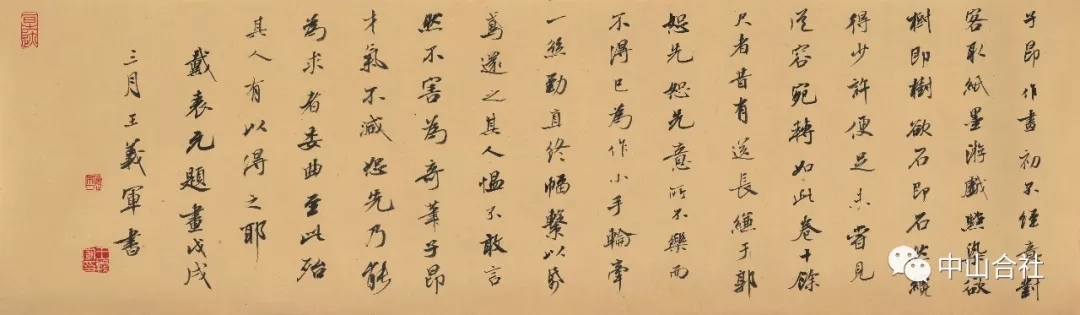 子昂作畫初不經意對
客取紙墨游戲點染欲
樹即樹欲石即石然纔
得少許便足未嘗見
從容宛轉如此卷十餘
尺者昔有送長縑于郭
恕先恕先意所不樂而
不得已為作小手輪牽
一絲勁直終幅繫以紙
鳶還之其人慍不敢言
然不害為奇筆子昂
才氣不減恕先乃能
為求者委曲至此殆
其人有以得之耶
戴表元題畫戊戌
三月王義軍書
中山合社